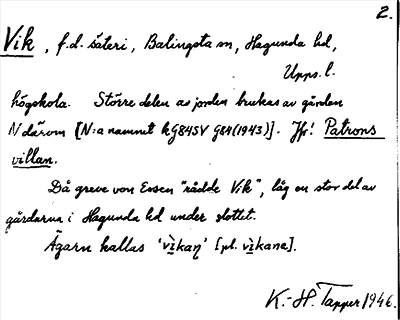 2.
Vik, f.d. säteri, Balingsta sn, Hagunda hd,
Upps. l.
högskola. Större delen av jorden brukas av gården
N därom [N:a namnet kG845V G84(1943)]. Jfr! Patrons
villan.
Då greve von Essen "rådde Vik", låg en stor del av
gårdarna i Hagunda hd under slottet.
Ägarn kallas 'vìkaɲ' [pl. vìkane].
K.-H. Tapper 1946.